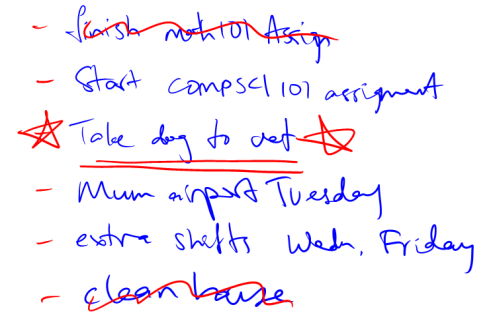 - finish math 101 Assign
- Start compsci 101 assigment
Take dog to vet
- Mum airport Tuesday
- extra shifts Wedn, Friday
- clean house